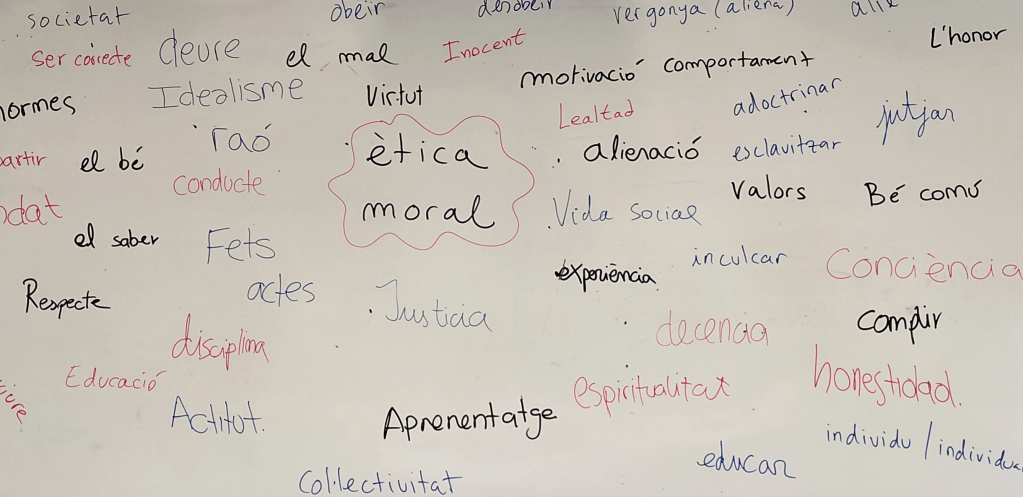 societat obeir desobeir vergonya (aliena)
ser correcte deure el mal Inocent motivació comportament L'honor
normes Idealisme Virtut Lealtad adoctrinar jutjar
el bé raó ètica alienació esclavitzar
conducte moral Vida social Valors Bé comú
el saber Fets experiència inculcar Conciència
Respecte actes Justicia decencia Complir
disciplina
Educació espiritualitat honestidad.
Actitut. Aprenentatge individu /
Col·lectivitat educar